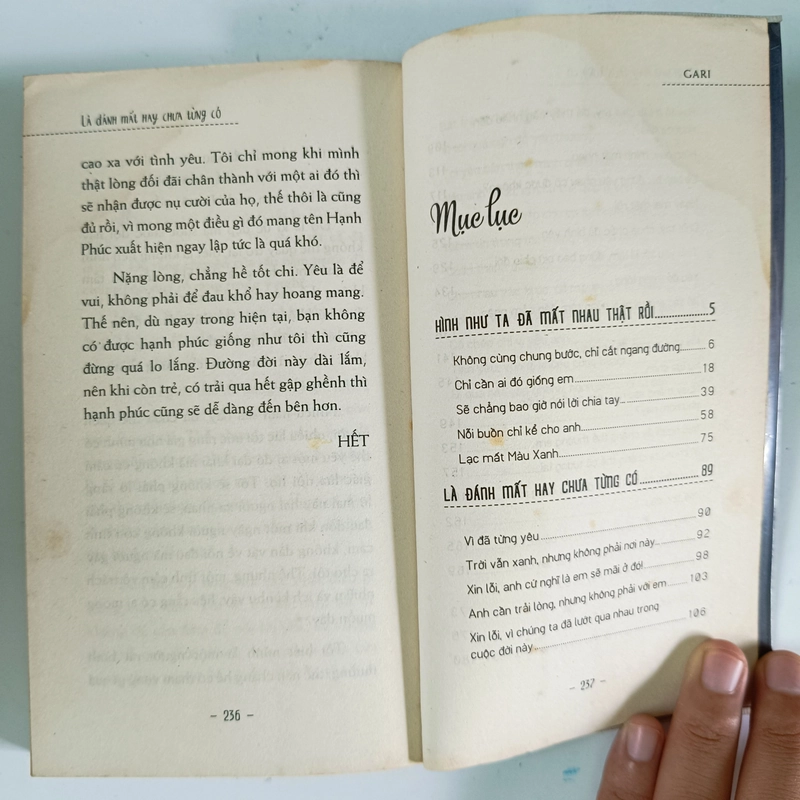 LÀ ĐÁNH MẤT HAY CHƯA TỪNG CÓ
cao xa với tình yêu. Tôi chỉ mong khi mình
thật lòng đối đãi chân thành với một ai đó thì
sẽ nhận được nụ cười của họ, thế thôi là cũng
đủ rồi, vì mong một điều gì đó mang tên Hạnh
Phúc xuất hiện ngay lập tức là quá khó.
Nặng lòng, chẳng hề tốt chi. Yêu là để
vui, không phải để đau khổ hay hoang mang.
Thế nên, dù ngay trong hiện tại, bạn không
có được hạnh phúc giống như tôi thì cũng
đừng quá lo lắng. Đường đời này dài lắm,
nên khi còn trẻ, có trải qua hết gập ghềnh thì
hạnh phúc cũng sẽ dễ dàng đến bên hơn.
HẾT
- 236 -
GARI
Mục lục
HÌNH NHƯ TA ĐÃ MẤT NHAU THẬT RỒI..................5
Không cùng chung bước, chỉ cắt ngang đường......6
Chỉ cần ai đó giống em..................18
Sẽ chẳng bao giờ nói lời chia tay..................39
Nỗi buồn chỉ kể cho anh..................58
Lạc mất Màu Xanh..................75
LÀ ĐÁNH MẤT HAY CHƯA TỪNG CÓ..................89
Vì đã từng yêu..................90
Trời vẫn xanh, nhưng không phải nơi này..........92
Xin lỗi, anh cứ nghĩ là em sẽ mãi ở đó!..........98
Anh cần trải lòng, nhưng không phải với em......103
Xin lỗi, vì chúng ta đã lướt qua nhau trong
cuộc đời này..................106
- 237 -